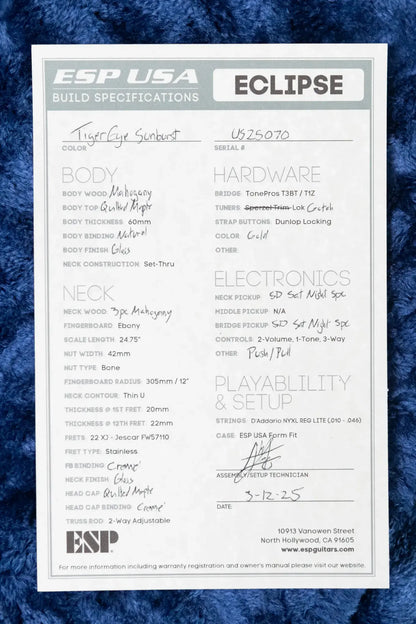 ESP USA
BUILD SPECIFICATIONS
ECLIPSE
TigerEye Sunburst
COLOR
US25070
SERIAL #
BODY
BODY WOOD: Mahogany
BODY TOP: Quilted Maple
BODY THICKNESS: 60mm
BODY BINDING: Natural
BODY FINISH: Gloss
NECK CONSTRUCTION: Set-Thru
NECK
NECK WOOD: 3pc Mahogany
FINGERBOARD: Ebony
SCALE LENGTH: 24.75"
NUT WIDTH: 42mm
NUT TYPE: Bone
FINGERBOARD RADIUS: 305mm / 12"
NECK CONTOUR: Thin U
THICKNESS @ 1ST FRET: 20mm
THICKNESS @ 12TH FRET: 22mm
FRETS: 22 XJ - Jescar FW57110
FRET TYPE: Stainless
FB BINDING: Creme'
NECK FINISH: Gloss
HEAD CAP: Quilted Maple
HEAD CAP BINDING: Creme'
TRUSS ROD: 2-Way Adjustable
HARDWARE
BRIDGE: TonePros T3BT / T1Z
TUNERS: Sperzel Trim-Lok Gotoh
STRAP BUTTONS: Dunlop Locking
COLOR: Gold
OTHER:
ELECTRONICS
NECK PICKUP: SD Set Night Spc
MIDDLE PICKUP: N/A
BRIDGE PICKUP: SD Set Night Spc
CONTROLS: 2-Volume, 1-Tone, 3-Way
OTHER: Push/Pull
PLAYABLILITY
& SETUP
STRINGS: D'Addario NYXL REG LITE (.010 - .046)
CASE: ESP USA Form Fit
ASSEMBLY/SETUP TECHNICIAN
3-12-25
DATE:
ESP
10913 Vanowen Street
North Hollywood, CA 91605
www.espguitars.com
For more information including warranty registration and owner's manual please visit our website.